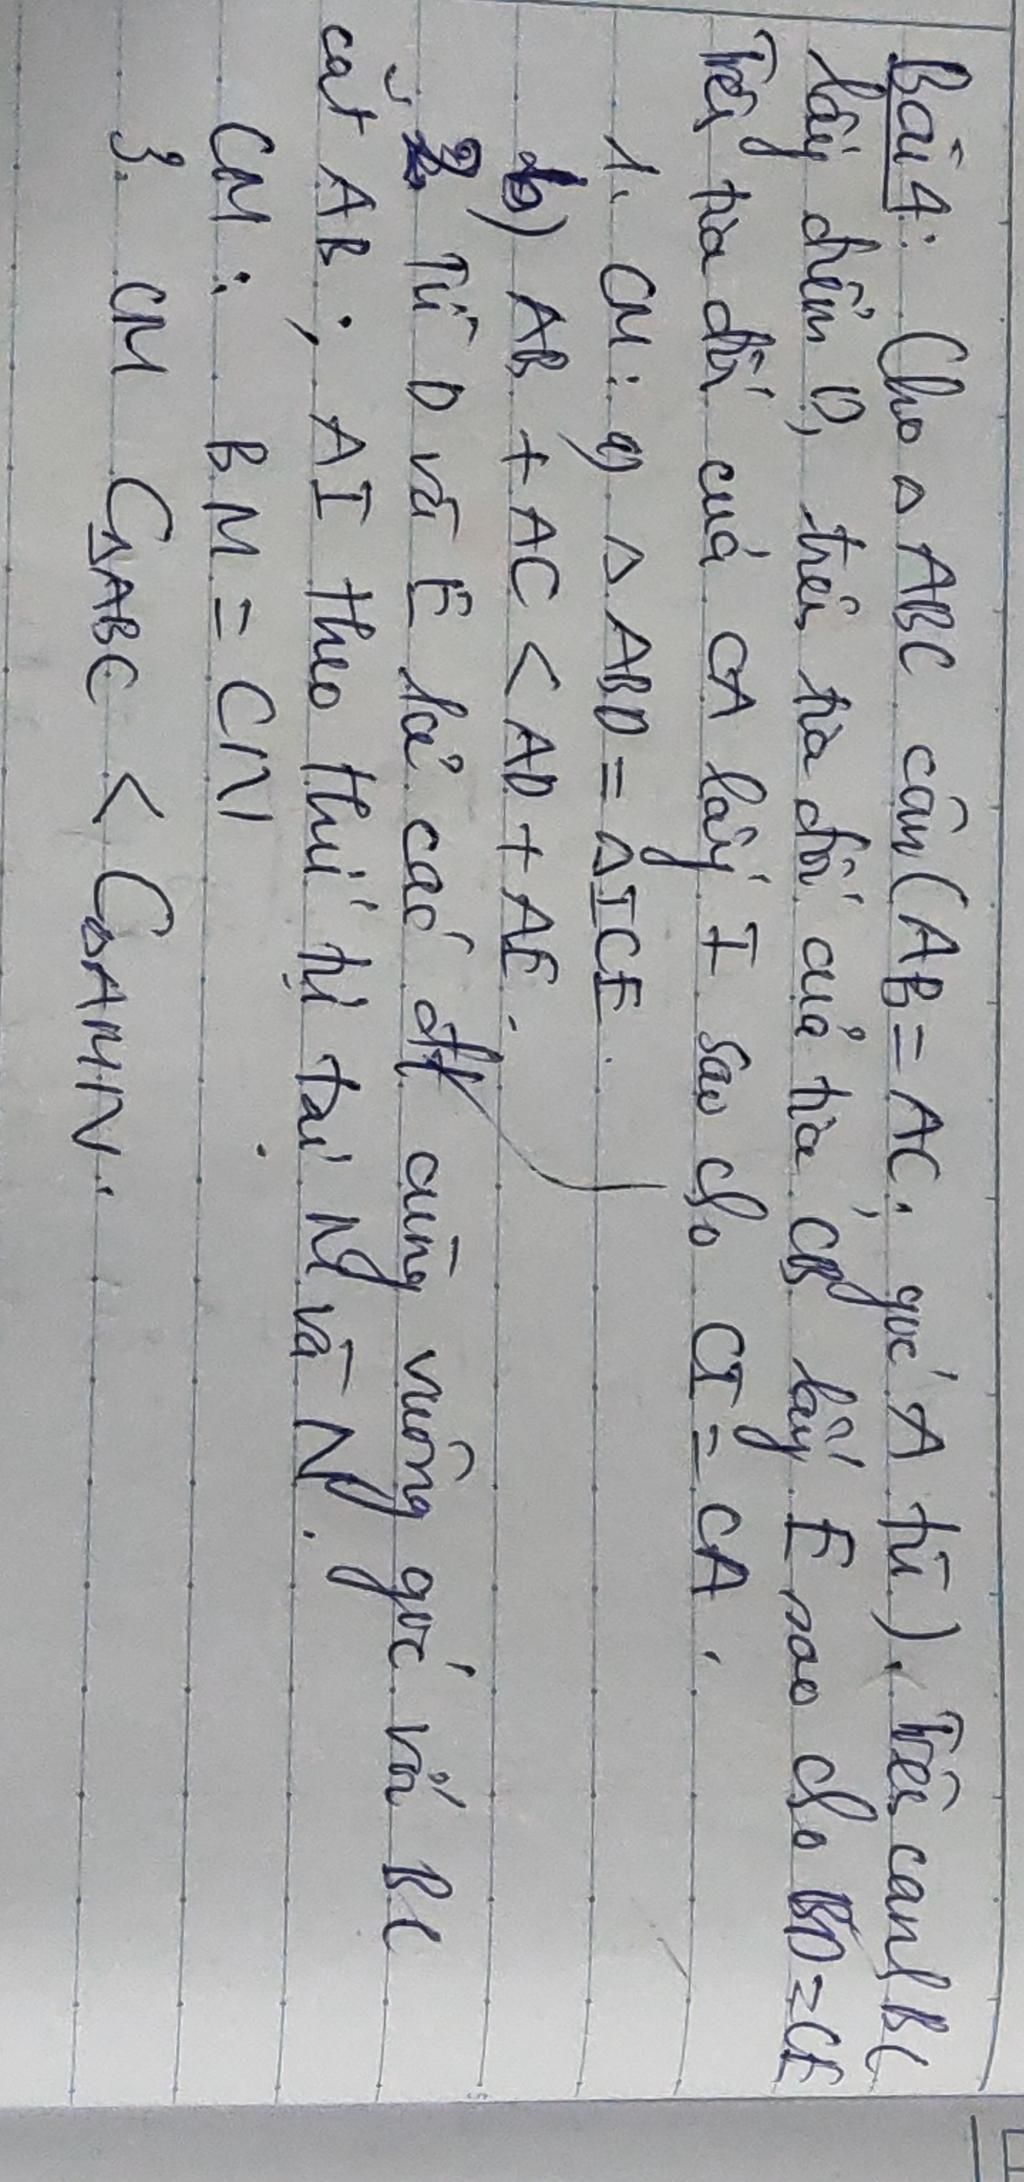 Bài 4: Cho △ ABC cân (AB = AC, góc A tù). Trên cạnh BC
lấy điểm D, trên tia đối của tia CB lấy E sao cho BD = CE
Trên tia đối của CA lấy I sao cho CI = CA.
1. CM: a) △ ABD = △ICE.
b) AB + AC < AD + AE.
2. Từ D và E kẻ các đt cùng vuông góc với BC
cắt AB; AI theo thứ tự tại M và N.
CM: BM = CN
3. CM C△ABC < C△AMN.